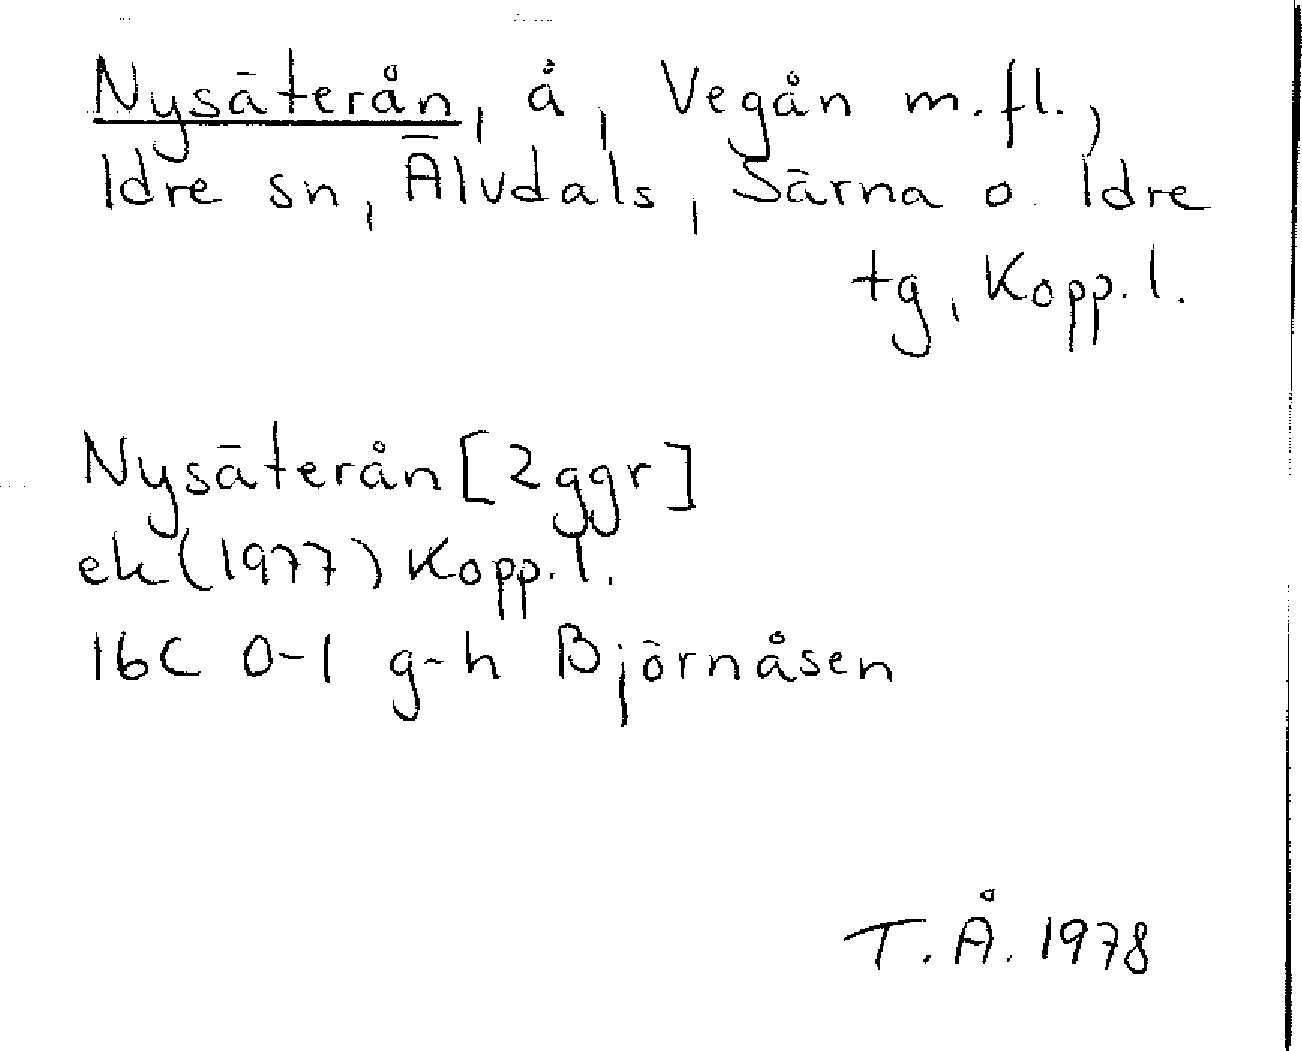 Nysäterån, å, Vegån m.fl.,
Idre sn, Älvdals, Särna o. Idre
tg, Kopp. l.
Nysäterån [2ggr]
ek (1977) Kopp. l.
16C 0-1 g-h Björnåsen
T. Å. 1978